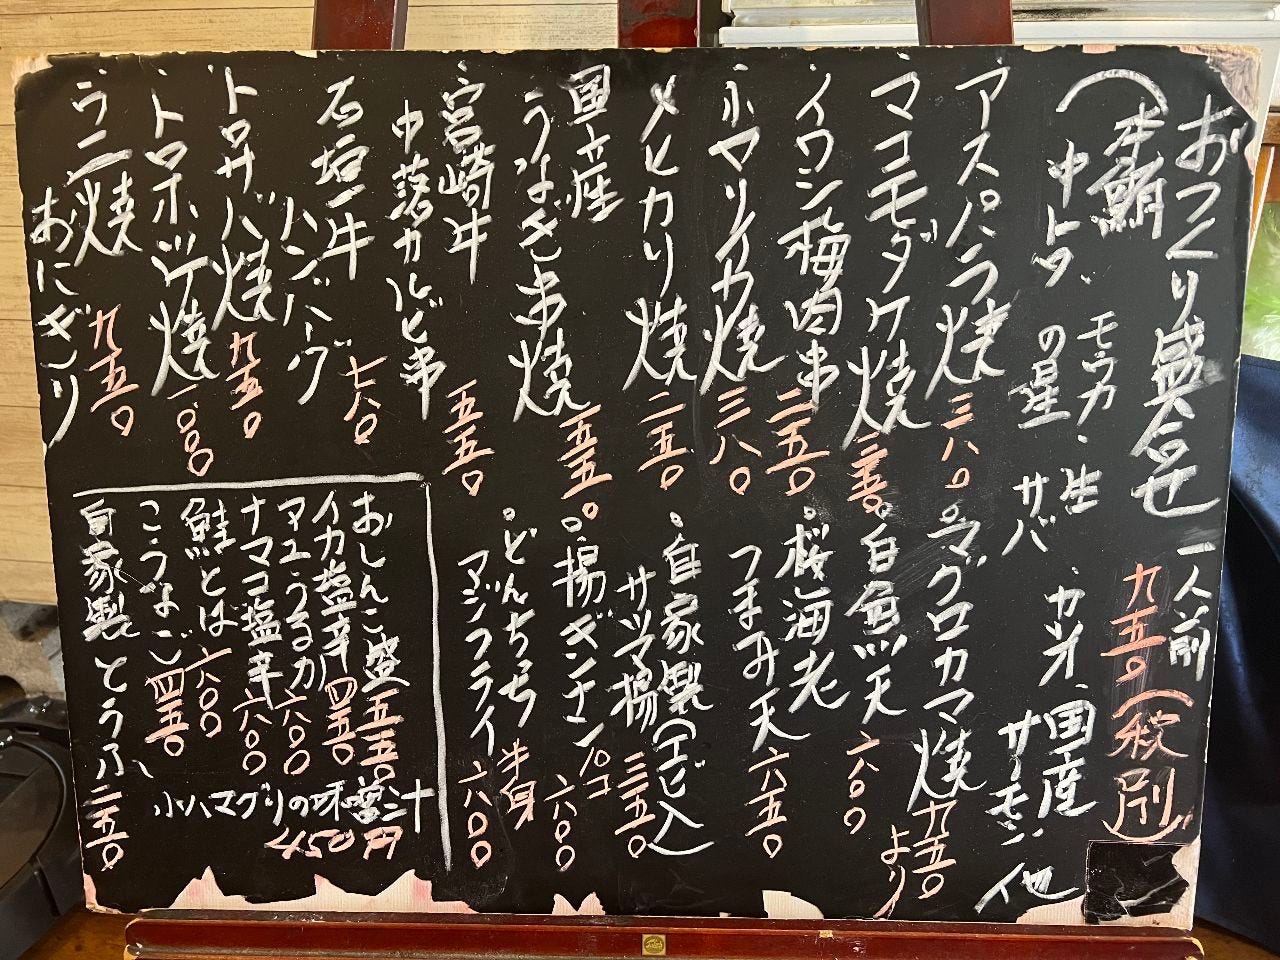 おつくり盛合せ 一人前
九五〇(税別)
(本鮪
中トロ モウカ・生 カツオ 国産
の星 サバ サーモン 他
アスパラ焼 三八〇
マコモダケ焼
イワシ梅肉串 二五〇
ホマリイカ焼 三八〇
メヒカリ焼 二五〇
国産
うなぎ串焼 五五〇
宮崎牛
中落カルビ串 五五〇
石垣牛
ハンバーグ 七八〇
トロサバ焼 九五〇
トロホッケ焼 一〇〇〇
ウニ焼
おにぎり 九五〇
マグロカマ焼 九五〇
より
白魚天 六〇〇
桜海老
つまみ天 六五〇
自家製(エビ入)
サツマ揚 三五〇
揚ギンナン 六〇〇
どんちっち 半身
アジフライ 六〇〇
おしんこ盛 五五〇
イカ塩辛 四五〇
アユうるか 六〇〇
ナマコ塩辛 六〇〇
鮭とば 六〇〇
こうなご 四五〇
自家製とうふ 二五〇
小ハマグリの味噌汁
450円